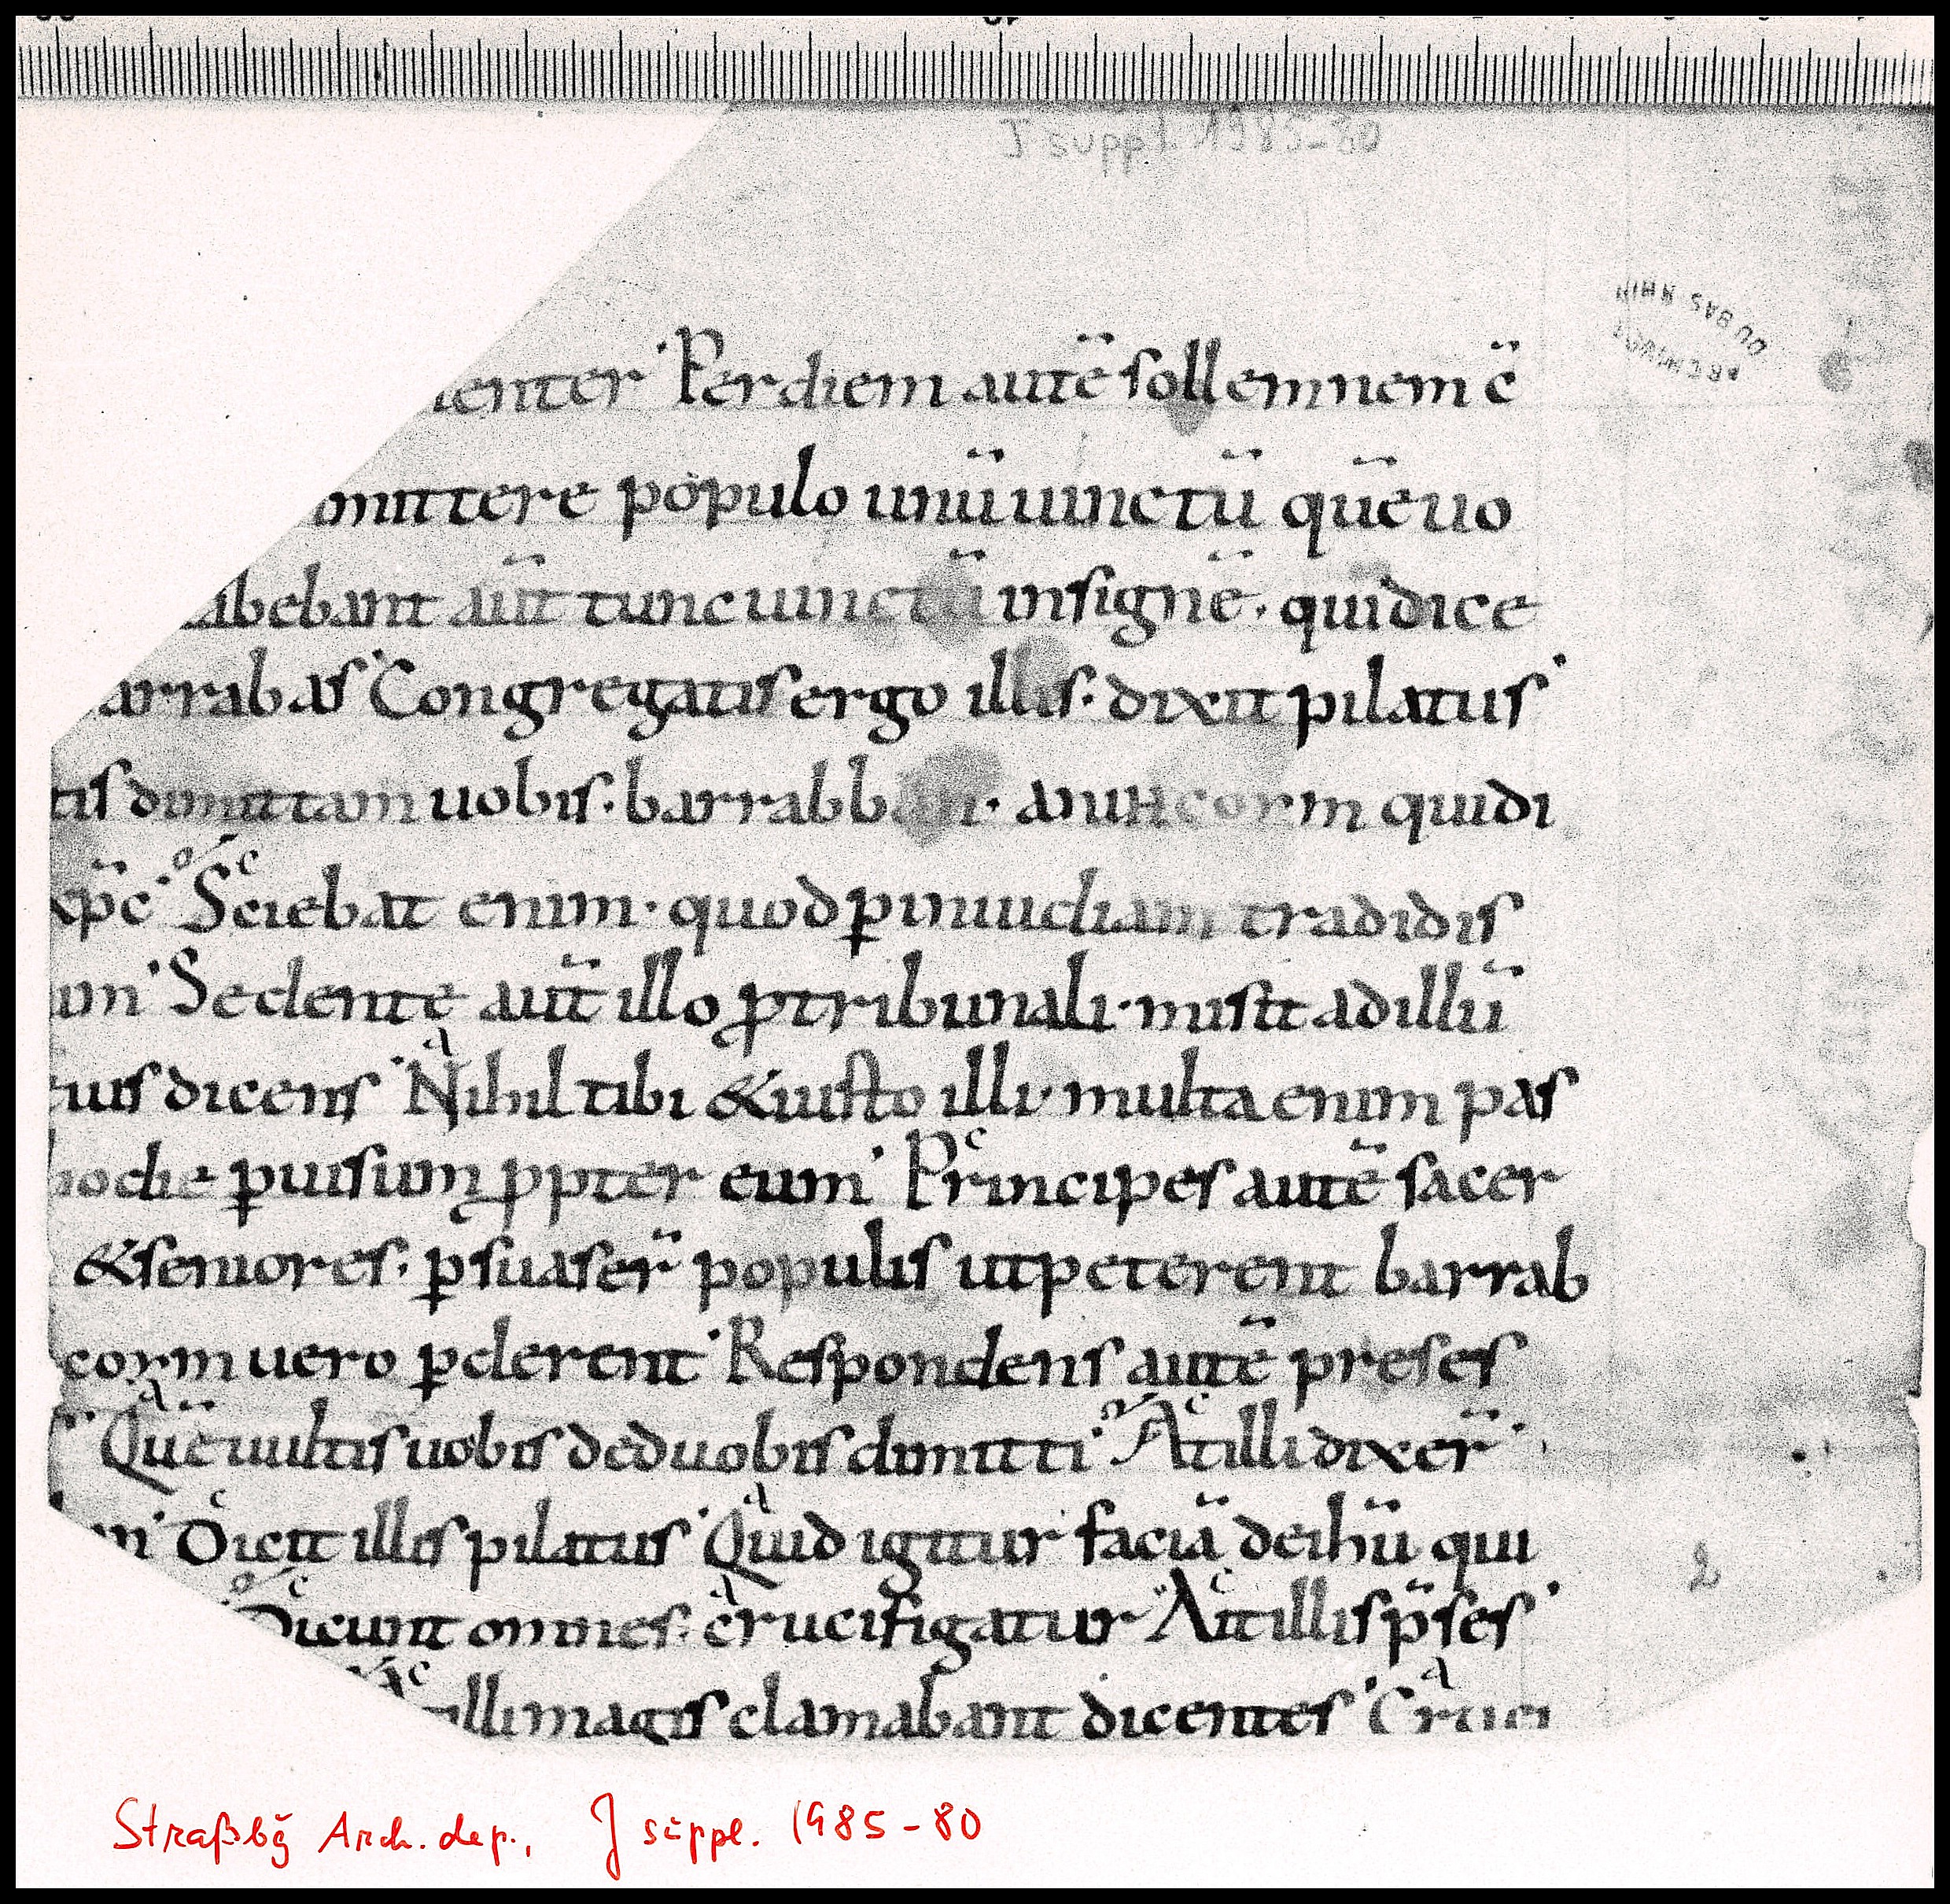 J suppl. 1985-80
DU BAS RHIN
ARCHIVES
enter Per diem autē sollemnem c̄
omittere populo unū uinctū quē uo
abebant aūt tunc uinctū insignē. qui dice
arrabas Congregatis ergo illis. dixit pilatus
tis dimittam uobis. barrabban. an ihm xpm qui di
xp̄c Sciebat enim. quod p̱ inuidiam tradidis
um Sedente aūt illo ꝓ tribunali. misit ad illū
tuis dicens Nihil tibi & iusto illi. multa enim pas
hodie ꝑ uisum ꝓpter eum Principes autē sacer
& seniores. ꝑsuaser̄ populis ut peterent barrab
uero ꝑderent Respondens autē preses
Quē uultis uobis de duobis dimitti At illi dixer̄
Dicit illis pilatus Quid igitur faciā de ihū qui
Dicunt omnes. crucifigatur Ait illis p̄ses
illi magis clamabant dicentes Cruci
2
Straßbg Arch. dep., J suppl. 1985-80